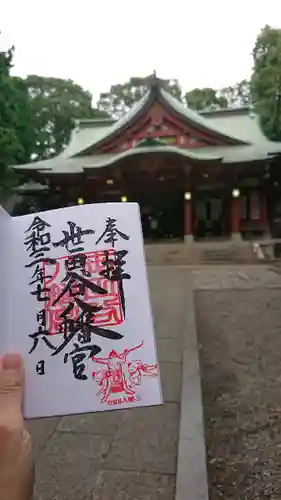 奉拝
世田谷八幡宮
令和三年七月六日